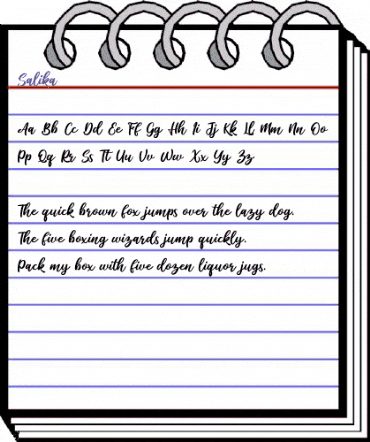 Salika
Aa Bb Cc Dd Ee Ff Gg Hh Ii Jj Kk Ll Mm Nn Oo
Pp Qq Rr Ss Tt Uu Vv Ww Xx Yy Zz
The quick brown fox jumps over the lazy dog.
The five boxing wizards jump quickly.
Pack my box with five dozen liquor jugs.